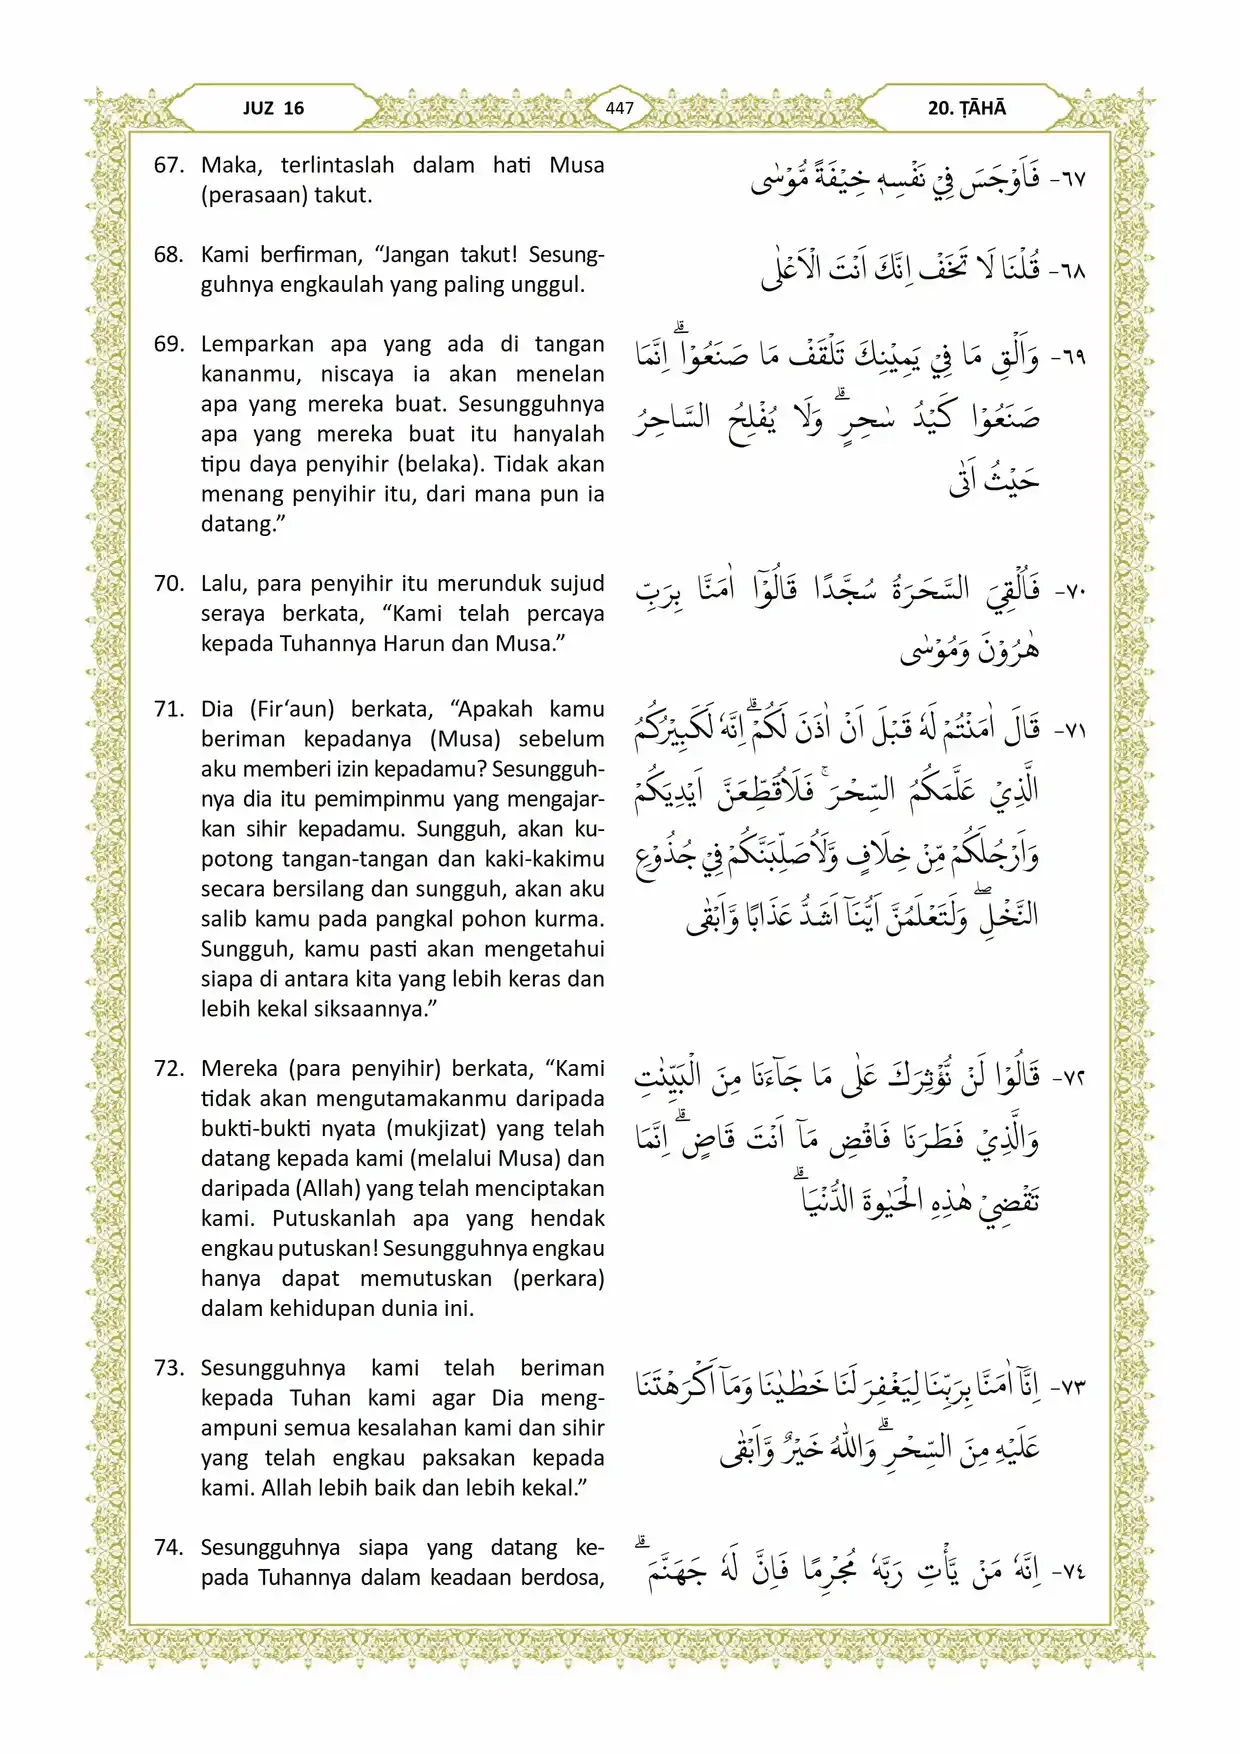 JUZ 16
447
20. ṬĀHĀ
67. Maka, terlintaslah dalam hati Musa
(perasaan) takut.
٦٧- فَاَوْجَسَ فِيْ نَفْسِهٖ خِيْفَةً مُّوْسٰى
68. Kami berfirman, “Jangan takut! Sesung-
guhnya engkaulah yang paling unggul.
٦٨- قُلْنَا لَا تَخَفْ اِنَّكَ اَنْتَ الْاَعْلٰى
69. Lemparkan apa yang ada di tangan
kananmu, niscaya ia akan menelan
apa yang mereka buat. Sesungguhnya
apa yang mereka buat itu hanyalah
tipu daya penyihir (belaka). Tidak akan
menang penyihir itu, dari mana pun ia
datang.”
٦٩- وَاَلْقِ مَا فِيْ يَمِيْنِكَ تَلْقَفْ مَا صَنَعُوْاۗ اِنَّمَا
صَنَعُوْا كَيْدُ سٰحِرٍۗ وَلَا يُفْلِحُ السَّاحِرُ
حَيْثُ اَتٰى
70. Lalu, para penyihir itu merunduk sujud
seraya berkata, “Kami telah percaya
kepada Tuhannya Harun dan Musa.”
٧٠- فَاُلْقِيَ السَّحَرَةُ سُجَّدًا قَالُوْٓا اٰمَنَّا بِرَبِّ
هٰرُوْنَ وَمُوْسٰى
71. Dia (Fir‘aun) berkata, “Apakah kamu
beriman kepadanya (Musa) sebelum
aku memberi izin kepadamu? Sesungguh-
nya dia itu pemimpinmu yang mengajar-
kan sihir kepadamu. Sungguh, akan ku-
potong tangan-tangan dan kaki-kakimu
secara bersilang dan sungguh, akan aku
salib kamu pada pangkal pohon kurma.
Sungguh, kamu pasti akan mengetahui
siapa di antara kita yang lebih keras dan
lebih kekal siksaannya.”
٧١- قَالَ اٰمَنْتُمْ لَهٗ قَبْلَ اَنْ اٰذَنَ لَكُمْۗ اِنَّهٗ لَكَبِيْرُكُمُ
الَّذِيْ عَلَّمَكُمُ السِّحْرَۚ فَلَاُقَطِّعَنَّ اَيْدِيَكُمْ
وَاَرْجُلَكُمْ مِّنْ خِلَافٍ وَّلَاُصَلِّبَنَّكُمْ فِيْ جُذُوْعِ
النَّخْلِۖ وَلَتَعْلَمُنَّ اَيُّنَآ اَشَدُّ عَذَابًا وَّاَبْقٰى
72. Mereka (para penyihir) berkata, “Kami
tidak akan mengutamakanmu daripada
bukti-bukti nyata (mukjizat) yang telah
datang kepada kami (melalui Musa) dan
daripada (Allah) yang telah menciptakan
kami. Putuskanlah apa yang hendak
engkau putuskan! Sesungguhnya engkau
hanya dapat memutuskan (perkara)
dalam kehidupan dunia ini.
٧٢- قَالُوْا لَنْ نُّؤْثِرَكَ عَلٰى مَا جَاۤءَنَا مِنَ الْبَيِّنٰتِ
وَالَّذِيْ فَطَرَنَا فَاقْضِ مَآ اَنْتَ قَاضٍۗ اِنَّمَا
تَقْضِيْ هٰذِهِ الْحَيٰوةَ الدُّنْيَاۗ
73. Sesungguhnya kami telah beriman
kepada Tuhan kami agar Dia meng-
ampuni semua kesalahan kami dan sihir
yang telah engkau paksakan kepada
kami. Allah lebih baik dan lebih kekal.”
٧٣- اِنَّآ اٰمَنَّا بِرَبِّنَا لِيَغْفِرَ لَنَا خَطٰيٰنَا وَمَآ اَكْرَهْتَنَا
عَلَيْهِ مِنَ السِّحْرِۗ وَاللّٰهُ خَيْرٌ وَّاَبْقٰى
74. Sesungguhnya siapa yang datang ke-
pada Tuhannya dalam keadaan berdosa,
٧٤- اِنَّهٗ مَنْ يَّأْتِ رَبَّهٗ مُجْرِمًا فَاِنَّ لَهٗ جَهَنَّمَۗ